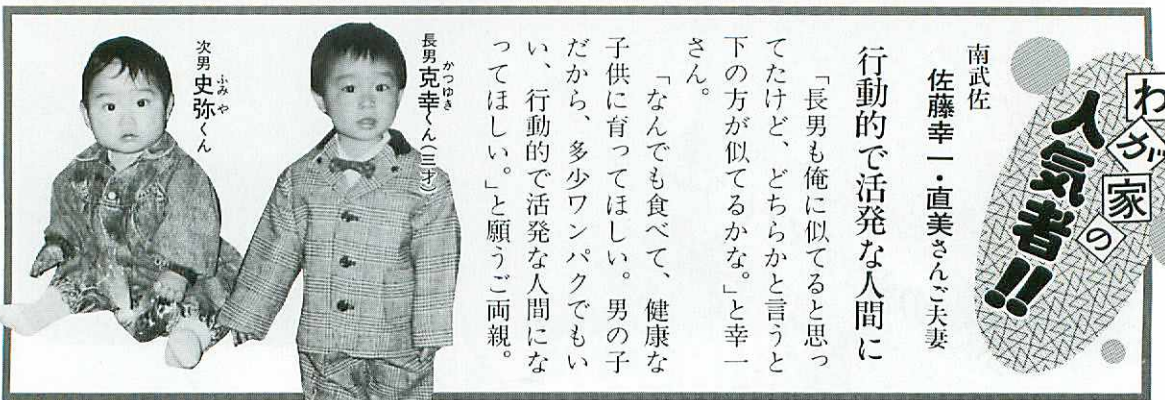 わが家の
人気者!!
南武佐
佐藤幸一・直美さんご夫妻
行動的で活発な人間に
「長男も俺に似てると思っ
てたけど、どちらかと言うと
下の方が似てるかな。」と幸一
さん。
「なんでも食べて、健康な
子供に育ってほしい。男の子
だから、多少ワンパクでもい
い、行動的で活発な人間にな
ってほしい。」と願うご両親。
長男克幸くん(三才)
かつゆき
次男史弥くん
ふみや